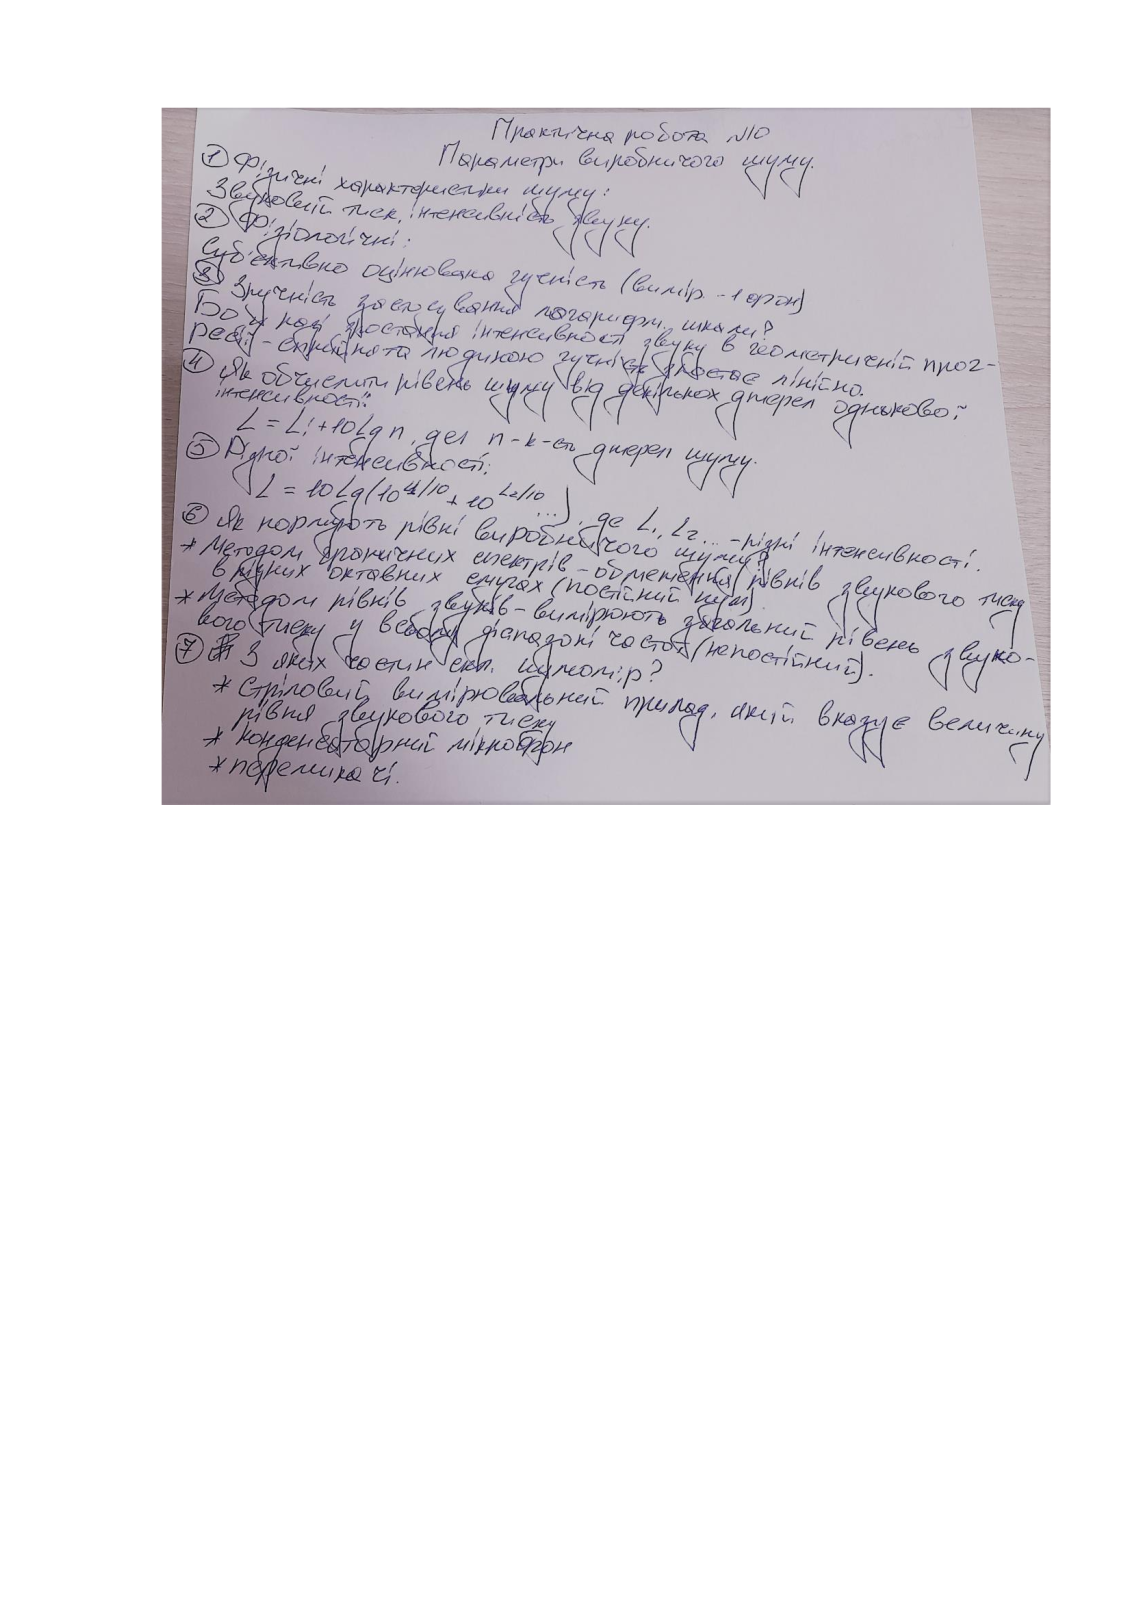 Практична робота №10
Параметри виробничого шуму.
① Фізичні характеристики шуму:
Звуковий тиск, інтенсивність звуку.
② Фізіологічні:
Суб'єктивно оцінювана гучність (вимір. - 1 фон)
③ Зручність застосування логарифм. шкали?
Бо при зростання інтенсивності звуку в геометричній прог-
ресії - сприйнята людиною гучність зростає лінійно.
④ Як обчислити рівень шуму від декількох джерел однакової
інтенсивності:
L = L₁ + 10Lg n, де n - к-сть джерел шуму.
⑤ Різної інтенсивності:
L = 10Lg(10^L₁/10 + 10^L₂/10 ...), де L₁, L₂... - різні інтенсивності.
⑥ Як нормують рівні виробничого шуму?
* Методом граничних спектрів - обмеження рівнів звукового тиску
в октавних смугах (постійний шум)
* Методом рівнів звуків - вимірюють загальний рівень звуко-
вого тиску у всьому діапазоні частот (непостійний).
⑦ З яких частин скл. шумомір?
* Стріловий вимірювальний прилад, який вказує величину
рівня звукового тиску
* конденсаторний мікрофон
* перемикачі.